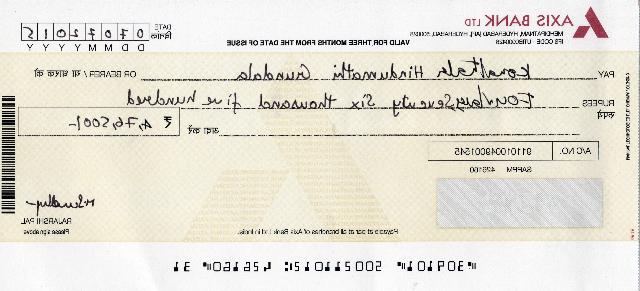 AXIS BANK LTD
MEHDIPATNAM, HYDERABAD [AP], HYDERABAD 500028
IFS CODE: UTIB0000426
DATE
दिनांक
07072015
D D M M Y Y Y Y
VALID FOR THREE MONTHS FROM THE DATE OF ISSUE
PAY Hindumathi Gundala OR BEARER/ या धारक को
RUPEES Four lac Seventy Six thousand five hundred
रुपये अदा करें ₹ 4,76,500/-
A/C NO. 911010049001545
SAPPM 426160
RAJARSHI PAL
Payable at par at all branches of Axis Bank Ltd in India.
Please sign above
"309101" 500211015: 426160" 31